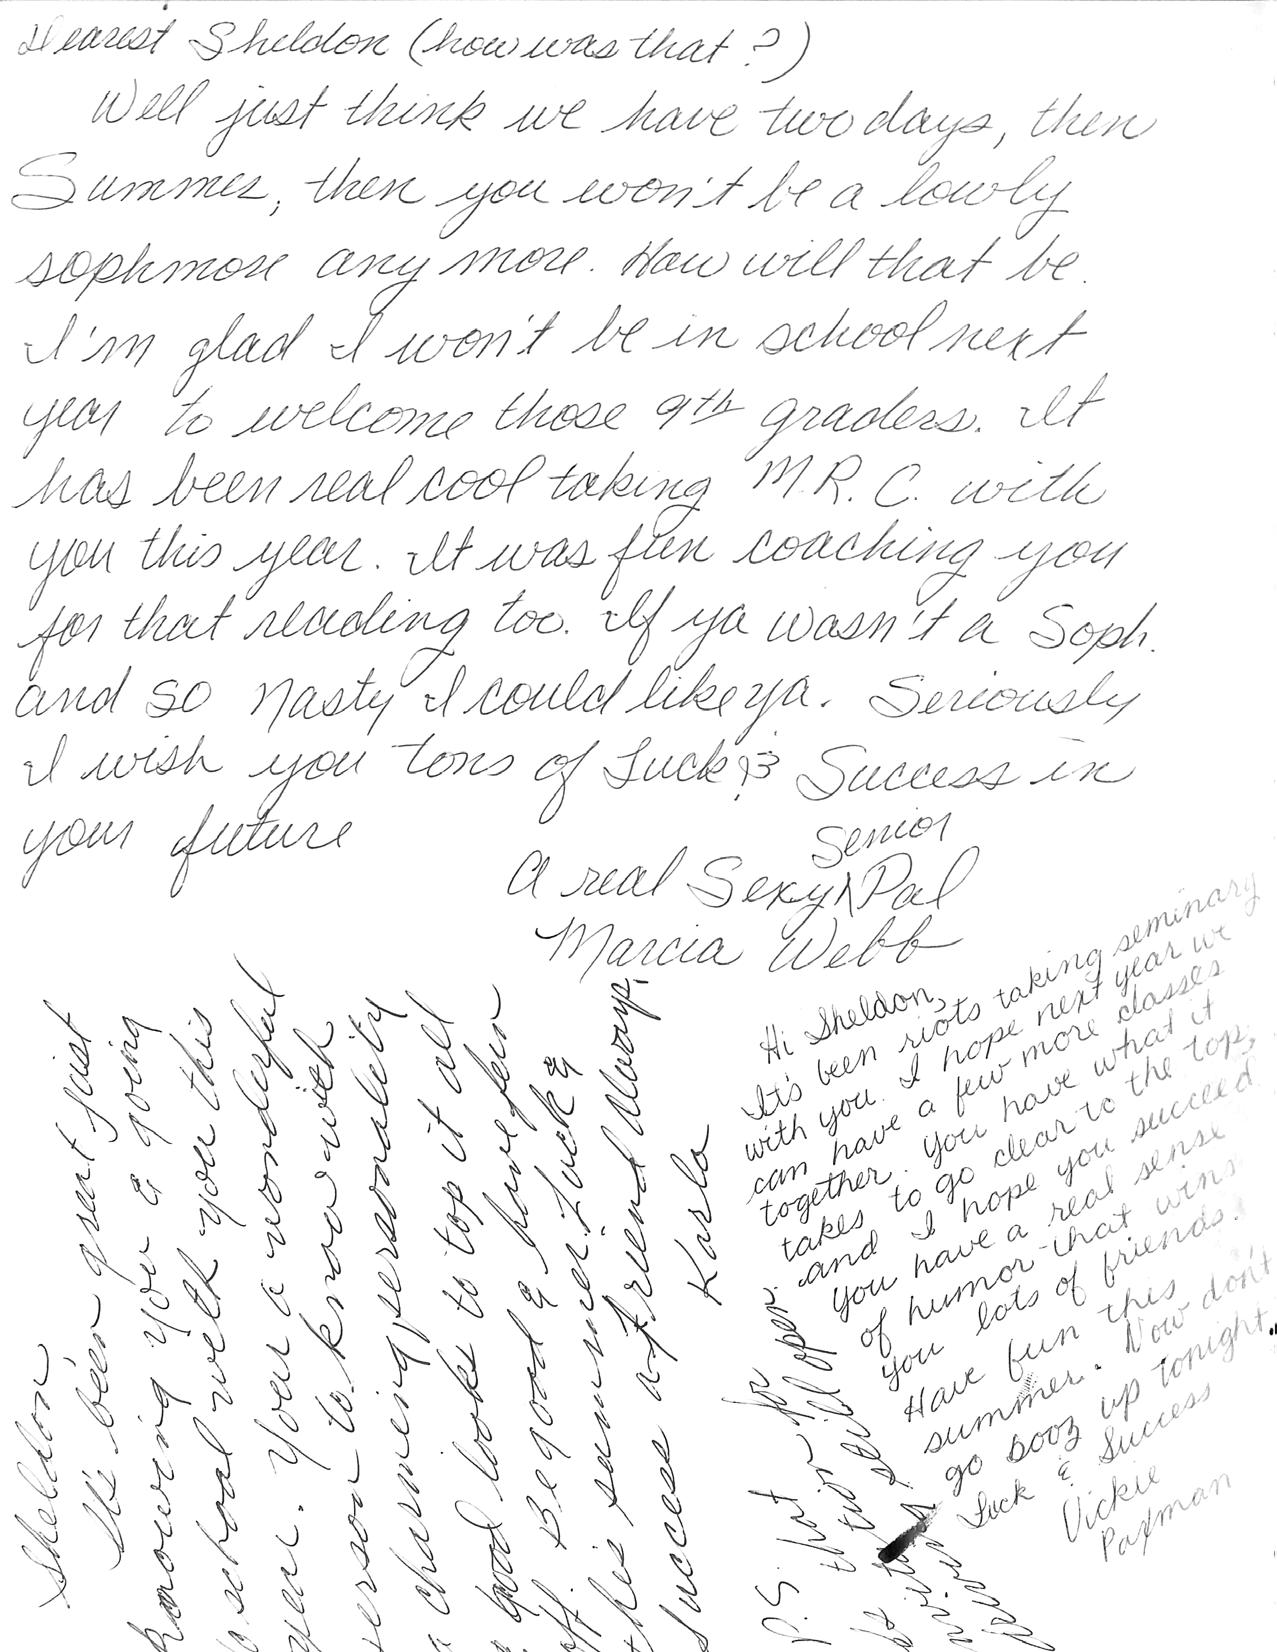 Dearest Sheldon (how was that?)
Well just think we have two days, then
Summer, then you won't be a lowly
sophmore any more. How will that be.
I'm glad I won't be in school next
year to welcome those 9th graders. It
has been real cool taking M.R.C. with
you this year. It was fun coaching you
for that reading too. If ya wasn't a Soph.
and so nasty I could like ya. Seriously
I wish you tons of Luck & Success in
your future
A real Sexy Senior Pal
Marcia Webb
Sheldon
It's been great just
knowing you & going
to school with you this
year. Your a wonderful
person to know with
a charming personality
& good looks to top it all
off. Be good & have fun
this summer. Luck &
Success a friend always,
Karla
Hi Sheldon,
It's been riots taking seminary
with you. I hope next year we
can have a few more classes
together. You have what it
takes to go clear to the top,
and I hope you succeed
You have a real sense
of humor that wins
you lots of friends.
Have fun this
summer. Now don't
go booz up tonight.
Luck & Success
Vickie
Paxman
P.S. that for